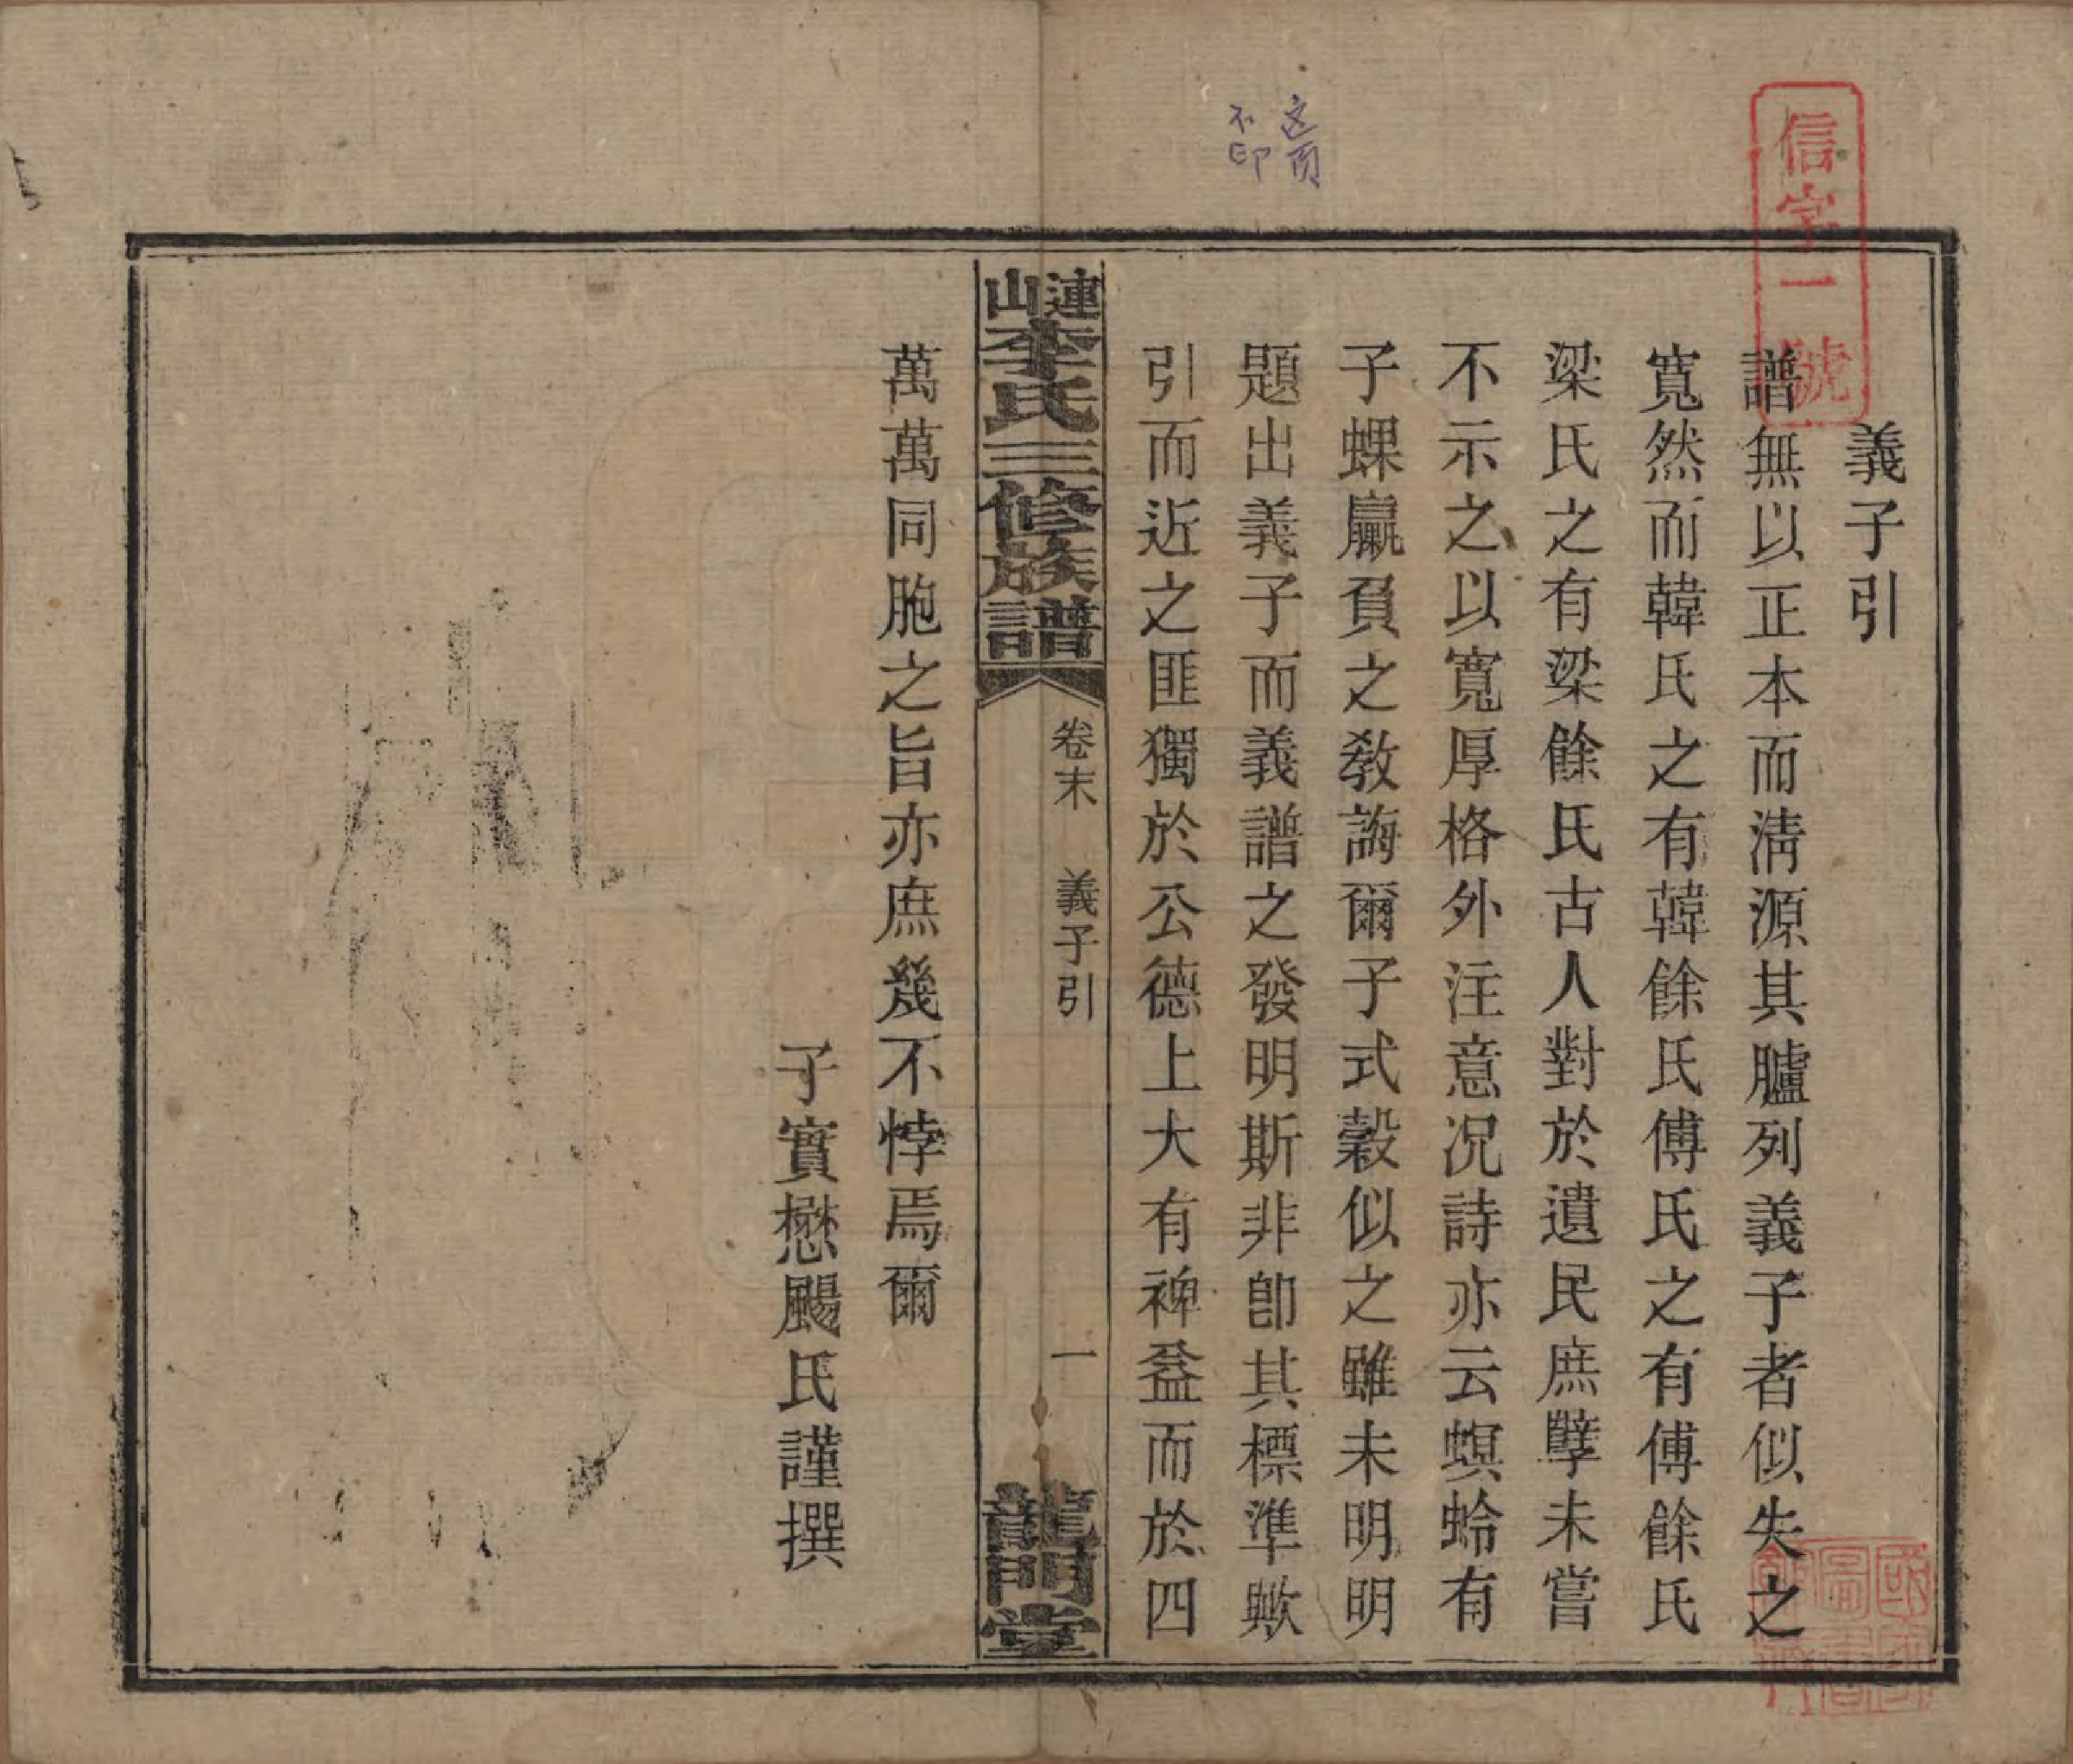 信字一號
这頁
不印
義子引
譜無以正本而淸源其臚列義子者似失之
寬然而韓氏之有韓餘氏傅氏之有傅餘氏
梁氏之有梁餘氏古人對於遺民庶孽未嘗
不示之以寬厚格外注意况詩亦云螟蛉有
子蜾臝負之敎誨爾子式穀似之雖未明明
題出義子而義譜之發明斯非卽其標準歟
引而近之匪獨於公德上大有裨益而於四
連山李氏三修族譜
卷末 義子引
一
龍門堂
萬萬同胞之旨亦庶幾不悖焉爾
子實懋颺氏謹撰